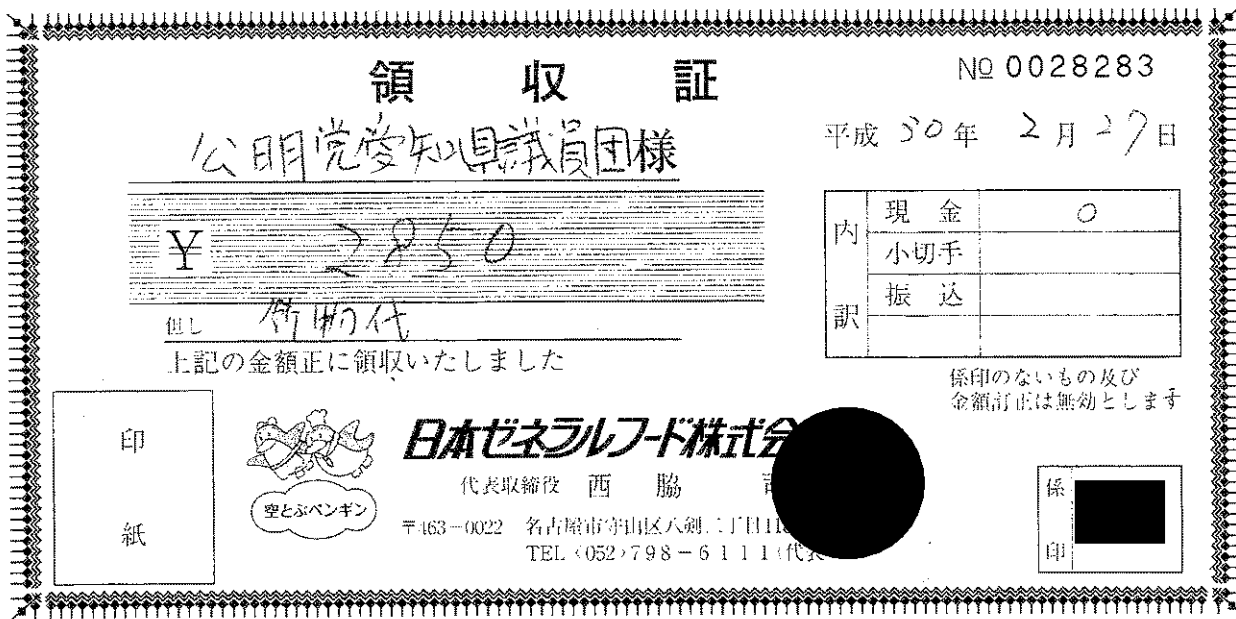 領収証
№ 0028283
公明党愛知県議員団様
平成 30年 2月 27日
¥ 2850
但し 飲物代
上記の金額正に領収いたしました
内訳
現金 ○
小切手
振込
係印のないもの及び
金額訂正は無効とします
印紙
空とぶペンギン
日本ゼネラルフード株式会
代表取締役 西脇
〒463-0022 名古屋市守山区八剣二丁目
TEL〈052〉798-6111(代表
係印